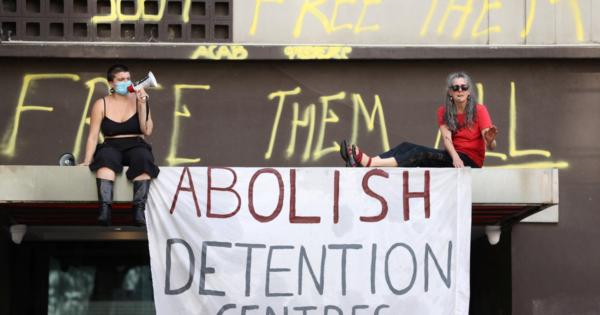 FREE THEM
ACAB
FREE THEM ALL
ABOLISH
DETENTION
CENTRES